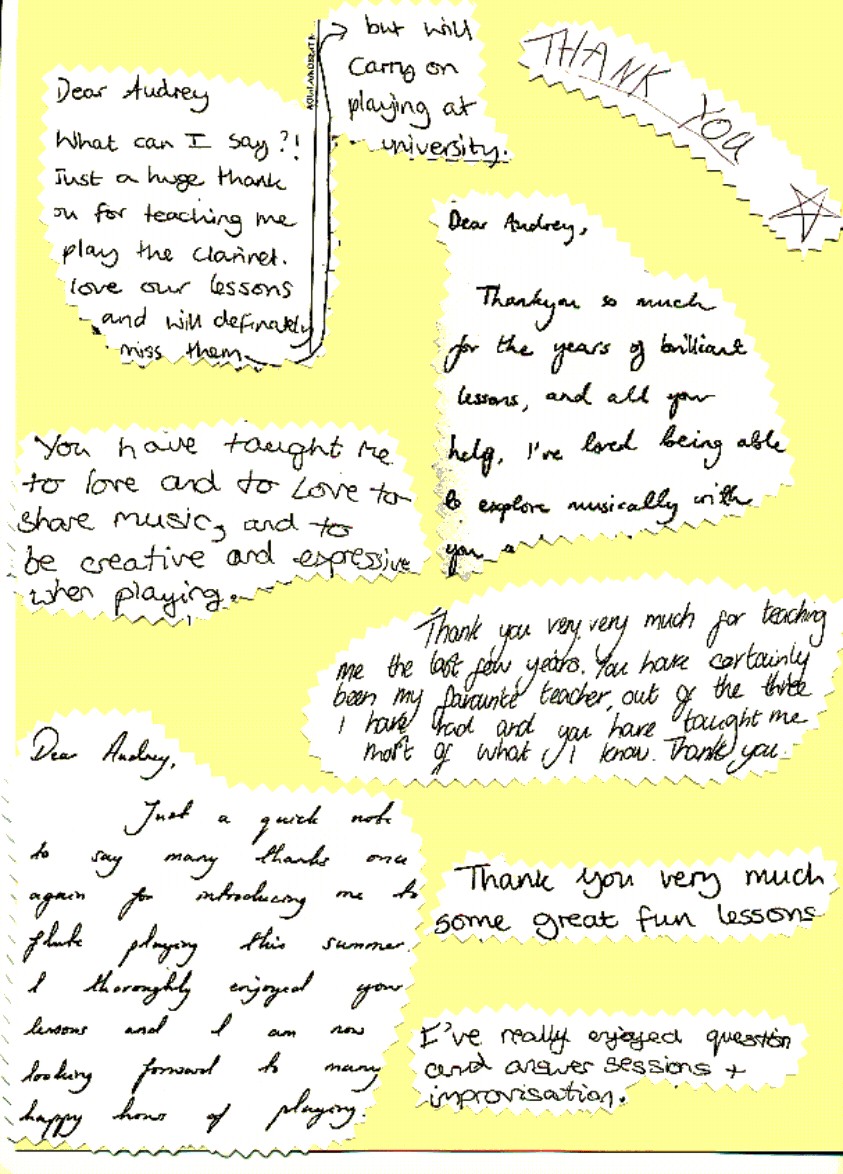 Dear Audrey
What can I say?!
Just a huge thank
ou for teaching me
play the clarinet.
love our lessons
and will definately
miss them
but will
carry on
playing at
university.
THANK YOU
Dear Audrey,
Thankyou so much
for the years of brilliant
lessons, and all your
help, I've loved being able
to explore musically with
you
You have taught me
to love and to love to
share music, and to
be creative and expressive
when playing.
Thank you very very much for teaching
me the last few years. You have certainly
been my favourite teacher, out of the three
I have had and you have taught me
most of what I know. Thank you.
Dear Audrey,
Just a quick note
to say many thanks once
again for introducing me to
flute playing this summer.
I thoroughly enjoyed your
lessons and I am now
looking forward to many
happy hours of playing.
Thank you very much
some great fun lessons
I've really enjoyed question
and answer sessions +
improvisation.